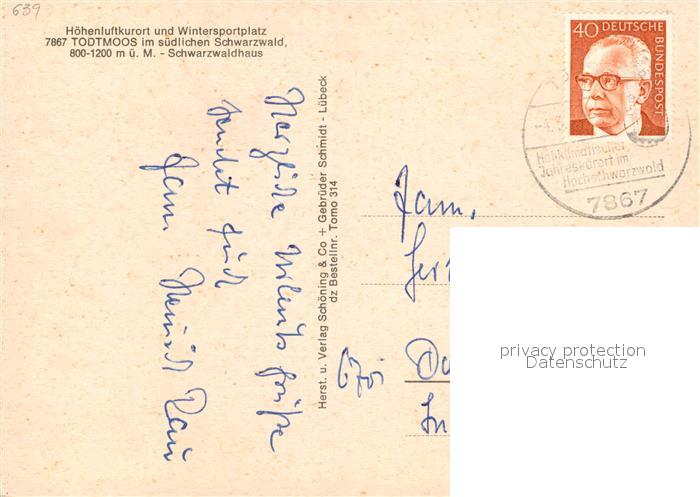 639
Höhenluftkurort und Wintersportplatz
7867 TODTMOOS im südlichen Schwarzwald,
800-1200 m ü. M. - Schwarzwaldhaus
Herzliche Urlaubsgrüße
sendet Euch
Fam. Heinrich
Herst. u. Verlag Schöning & Co + Gebrüder Schmidt - Lübeck
dz Bestellnr. Tomo 314
40 DEUTSCHE BUNDESPOST
Heilklimatischer
Jahreskurort im
Hochschwarzwald
7867
Fam.
675
In
privacy protection
Datenschutz